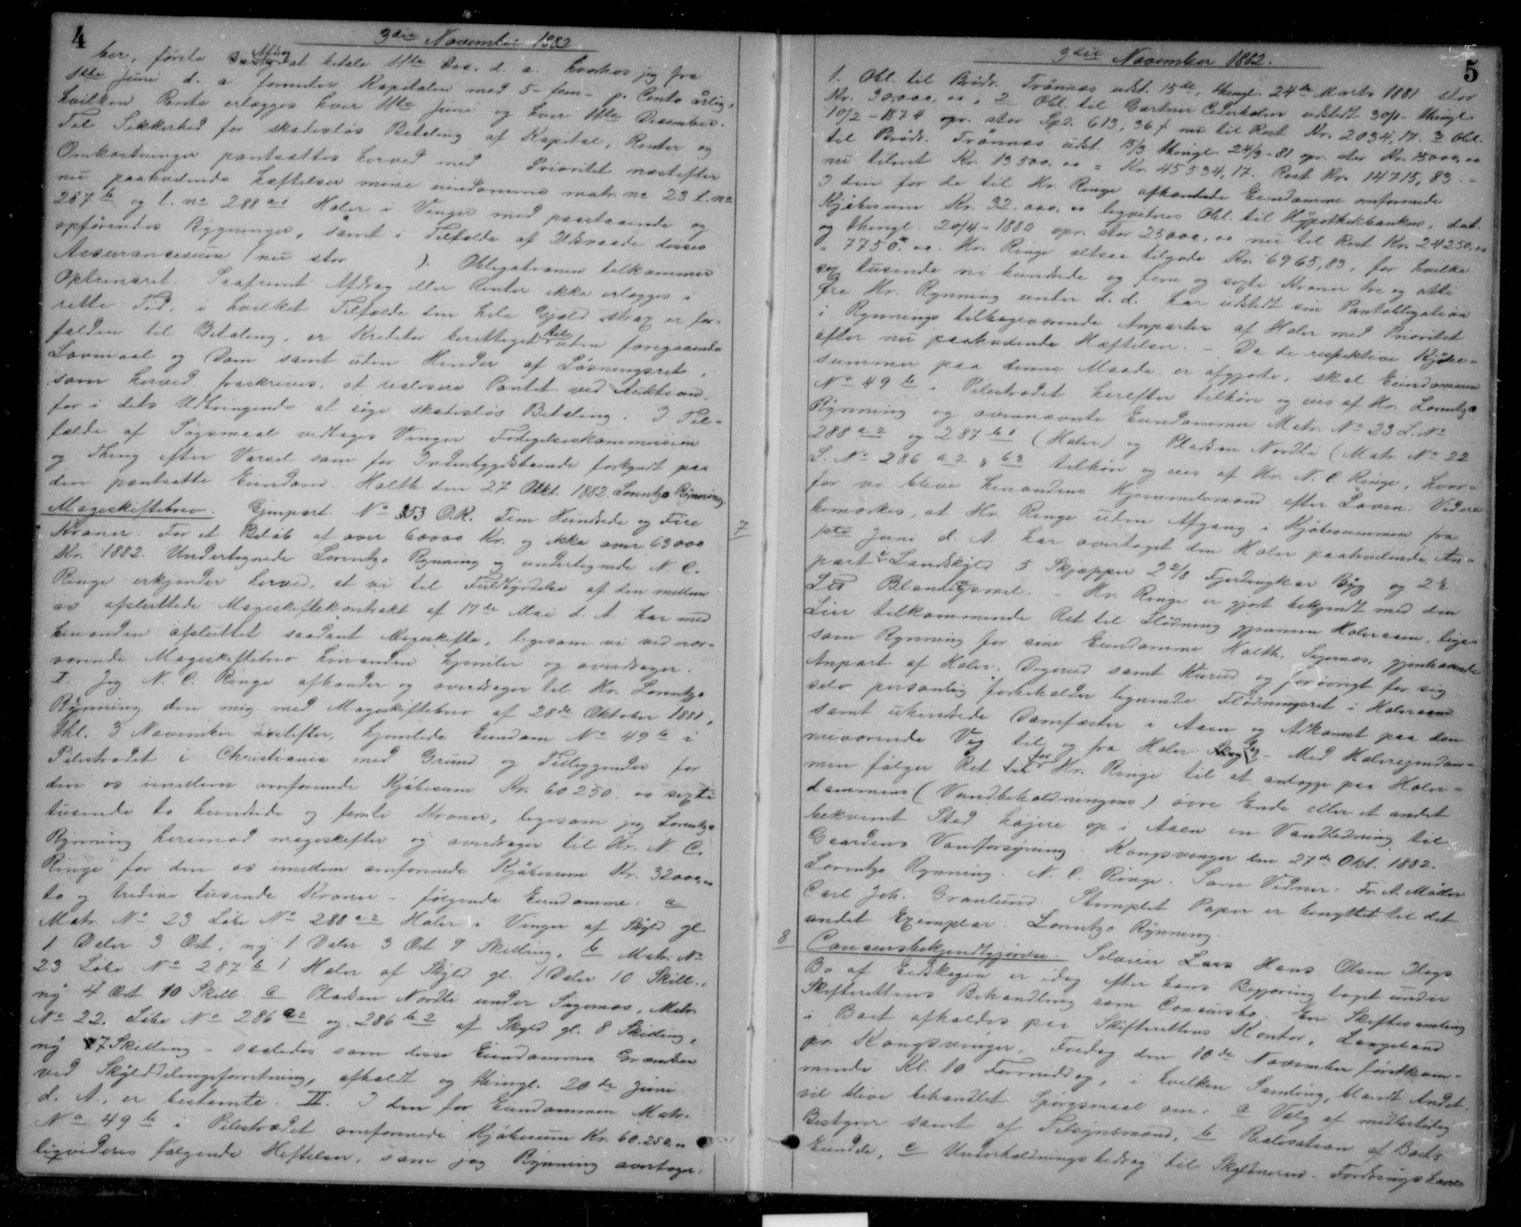 4
3die November 1882.
ber, første Afdrag at betale 11te Dec. d. a. hvorhos jeg fra
11te Juni d. a. forrenter Kapitalen med 5 - fem - p. Cento årlig,
hvilken Rente erlægges hver 11te Juni og hver 11te December.
Til Sikkerhed for skadesløs Betaling af Kapital, Renter og
Omkostninger pantsættes herved med Prioritet næstefter
nu paahvilende Hæftelser mine eiendomme matr. no 23 l. no
287 b og l. no 288 a1 Holer i Vinger med paastaaende og
opførendes Bygninger, samt i Tilfælde af Ildsvaade disses
Assurancesum (nu stor ). Obligationen tilkommer
Optrinsret. Saafremt Afdrag eller Renter ikke erlægges i
rette Tid, i hvilket Tilfælde den hele Gjæld strax er for-
falden til Betaling, er Kreditor berettiget til uden foregaaende
Lovmaal og Dom samt uden Hinder af Løsningsret,
som herved fraskrives, at realisere Pantet ved Auktion,
for i dets Udbringende at søge skadesløs Betaling. I Til-
fælde af Søgsmaal vedtages Vinger Forligelseskommission
og Thing efter Varsel som for Indenbygdsboende forkyndt paa
den pantsatte Eiendom. Holth den 27 Okt. 1882. Lorentzo Rynning
Mageskiftebrev. Gjenpart. No 353 O.R. Fem Hundrede og Fire
Kroner. For et Beløb af over 60000 Kr. og ikke over 63000
Kr. 1882. Undertegnede Lorentzo Rynning og undertegnede N. C.
Ringe erkjender herved, at vi til Fuldbyrdelse af den mellem
os afsluttede Mageskiftekontrakt af 17de Mai d. A. har med
hinanden afsluttet saadant Mageskifte, ligesom vi ved nær-
værende Mageskiftebrev hinanden hjemler og overdrager.
I. Jeg N. C. Ringe afhænder og overdrager til Hr. Lorentzo
Rynning den mig med Mageskiftebrev af 28de Oktober 1881,
thl. 3 November næstefter, hjemlede Eiendom No 49 b i
Pilestrædet i Christiania med Grund og Tilliggender for
den os imellem omforenede Kjøbesum Kr. 60250.00 sexti
tusinde to hundrede og femti Kroner, ligesom jeg Lorentzo
Rynning herimod mageskifter og overdrager til Hr. N. C.
Ringe for den os imellem omforenede Kjøbesum Kr. 32000,00
to og tredive tusinde Kroner - følgende Eiendomme: a
Matr. No 23 Løbe No 288 a2 Holer i Vinger af Skyld gl.
1 Daler 3 Ort, ny 1 Daler 3 Ort 9 Skilling, b Matr. No
23 Løbe No 287 b1 Holer af Skyld gl. 1 Daler 10 Skill.,
ny 4 Ort 10 Skill. c Pladsen Nordli under Sigernæs, Matr.
No 22. Løbe No 286 a2 og 286 b2 af Skyld gl. 8 Skilling,
ny 7 Skilling - saaledes som disse Eiendommes Grændser
ved Skylddelingsforretning, afholdt og thingl. 20de Juni
d. A., er bestemte. II. I den for Eiendommen Matr.
No 49 b i Pilestrædet omforenede Kjøbesum Kr. 60.250.00
liqvideres følgende Heftelser, som jeg Rynning overtager:
7
8
5
3die November 1882.
1. Obl. til Brødr. Frønnæs udst. 15de, thingl. 24de Marts 1881 stor
Kr. 30,000,00, 2 Obl. til Gartner Cederholm udstedt 30/1 thingl.
10/2 - 1874 opr. stor Spd. 613, 36 f nu til Rest Kr. 2034,17. 3 Obl.
til Brødr. Frønnæs udst. 15/3 thingl. 24/3 - 81 opr. stor Kr. 15000,00
nu tilrest Kr. 13500,00 = Kr. 45534,17. Rest Kr. 14715,83. -
I den for de til Hr. Ringe afhændede Eiendomme omforenede
Kjøbesum Kr. 32.000,00 liqvideres Obl. til Hypothekbanken, dat.
og thingl. 20/4 - 1880 opr. stor 25000,00 nu til Rest Kr. 24250,00
= 7750.00. Hr. Ringe altsaa tilgode Kr. 6965,83, for hvilke
sex tusinde ni hundrede og fem og sexti Kroner tre og otti
Øre Hr. Rynning under d. d. har udstedt sin Pantobligation
i Rynnings tilbageværende Anparter af Holer med Prioritet
efter nu paahvilende Hæftelser. - Da de respektive Kjøbe-
summer paa denne Maade er afgjorte, skal Eiendommen
No 49 b i Pilestrædet herefter tilhøre og eies af Hr. Lorentzo
Rynning og ovennævnte Eiendommer Matr. No 23 L. No
288 a2 og 287 b1 (Holer) og Pladsen Nordli (Matr. No 22
L. No 286 a2 & b2 tilhøre og eies af Hr. N. C. Ringe, hvor-
for vi blive hinandens Hjemmelsmænd efter Loven. Videre
bemærkes, at Hr. Ringe uden Afgang i Kjøbesummen fra
1ste Juni d. A. har overtaget den Holer paahvilende An-
part i Landskyld 5 Skjæpper 2 2/3 Fjerdingkar Byg og 2 1/2
Lod Blandingsmel. - Hr. Ringe er gjort bekjendt med den
Lier tilkommende Ret til Flødning gjennem Holeraaen, lige-
som Rynning for sine Eiendomme Holth, Sigernæs, gjenhavende
Anpart af Holer, Digerud samt Hurud og forøvrigt for sig
selv personlig forbeholder lignende Flødningsret i Holeraaen
samt uhindrede Damfæster i Aaen og Adkomst paa den
nuværende Vej til og fra Holer Brug - Med Holerejendom-
men følger Ret for Hr. Ringe til at anlægge paa Holer-
dammens (Vandbeholdningens) øvre Ende eller et andet
bekvemt Sted højere op i Aaen en Vandledning til
Gaardens Vandforsyning. Kongsvinger den 27de Okt. 1882.
Lorentzo Rynning. N. C. Ringe. Som Vidner: Fr. A. Møller
Carl Joh. Granlund. Stemplet Papir er benyttet til det
andet Exemplar. Lorentzo Rynning.
Concursbekjendtgjørelse. Selveier Hans Olsen
Bo af Eidskogen er idag efter hans Begjæring taget under
Skifterettens Behandling som Concursbo. En Skiftesamling
i Boet afholdes paa Skifterettens Kontor, Langeland
pr. Kongsvinger, Fredag den 10de November førstkom-
mende Kl. 10 Formiddag, i hvilken Samling, blandt Andet
vil blive behandlet Spørgsmaal om: a Valg af midlertidig
Bestyrer samt af Tilsynsmænd, b Realisation af Boets
Eiendele, c Underholdningsbidrag til Skyldneren. Fordringshavere